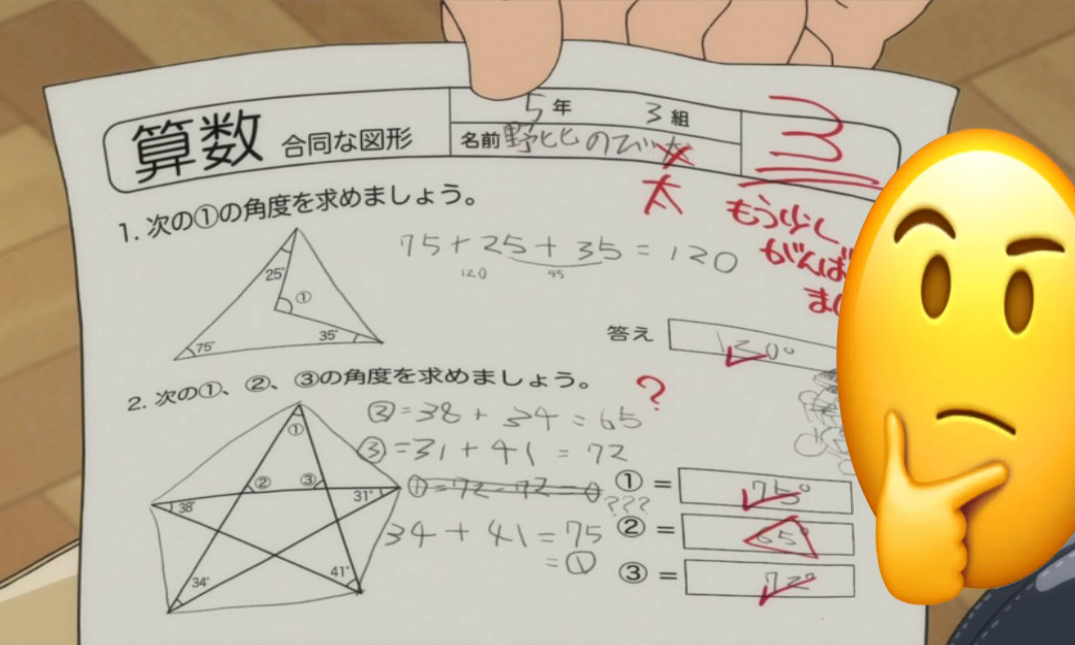 算数 合同な図形
5年 3組
名前 野比のび犬
太
3
もう少し
がんば
ま
1. 次の①の角度を求めましょう。
25°
①
75°
35°
75+25+35=120
120 95
答え
130°
2. 次の①、②、③の角度を求めましょう。
?
①
② ③
38°
31°
34°
41°
②=38+34=65
③=31+41=72
①=72-72=0
???
34+41=75
=①
①= 75°
②= 65°
③= 72°